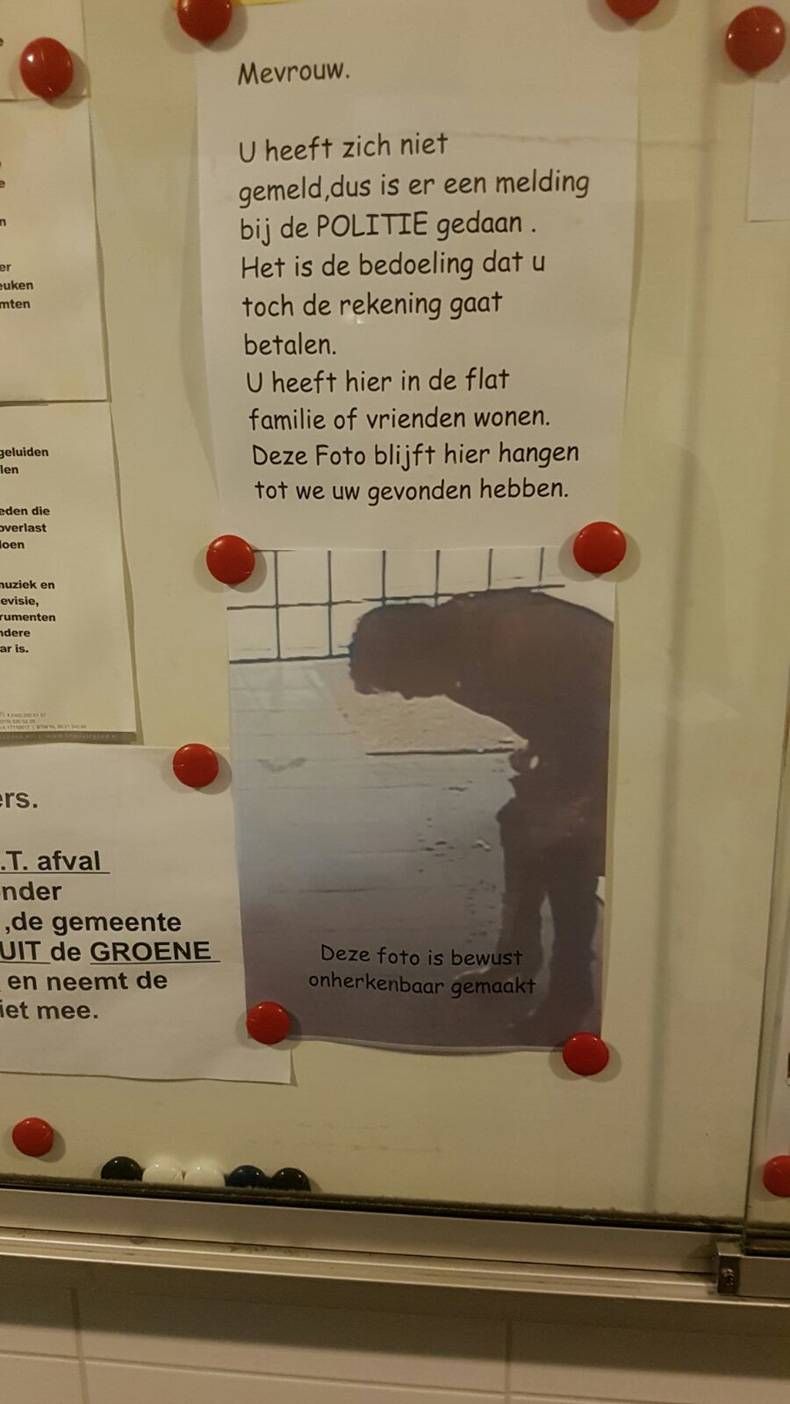 Mevrouw.
U heeft zich niet
gemeld,dus is er een melding
bij de POLITIE gedaan .
Het is de bedoeling dat u
toch de rekening gaat
betalen.
U heeft hier in de flat
familie of vrienden wonen.
Deze Foto blijft hier hangen
tot we uw gevonden hebben.
Deze foto is bewust
onherkenbaar gemaakt
er
euken
mten
geluiden
len
eden die
overlast
loen
muziek en
evisie,
rumenten
ndere
ar is.
ers.
.T. afval
nder
,de gemeente
UIT de GROENE
en neemt de
iet mee.